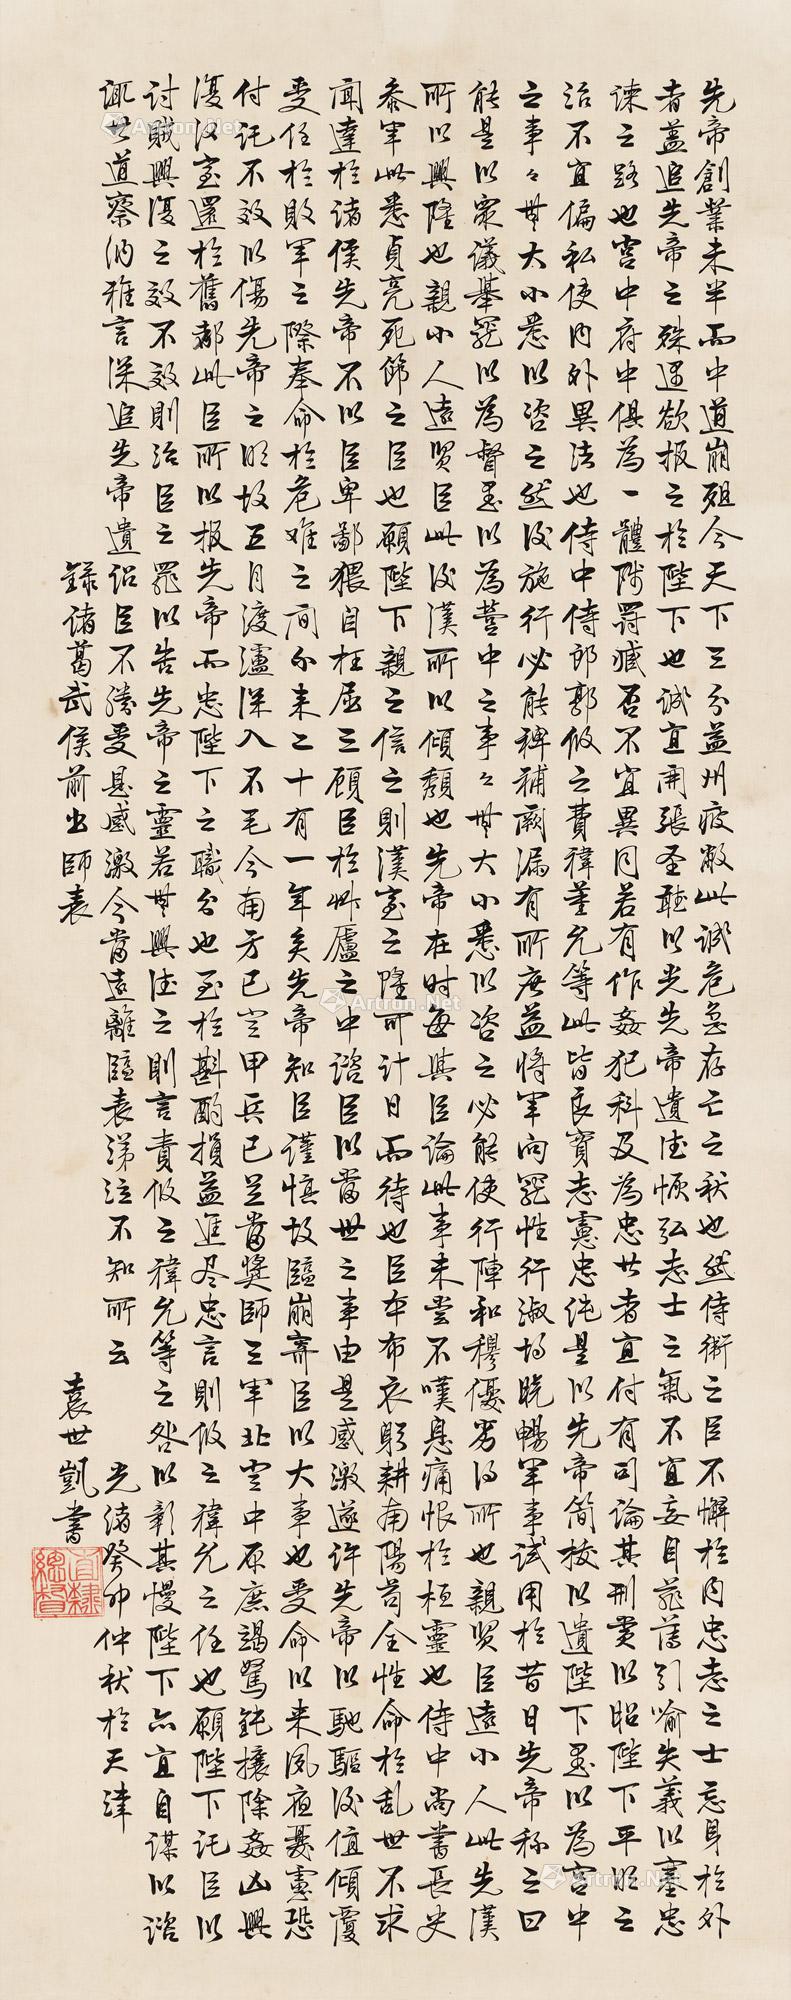 先帝創業未半而中道崩殂今天下三分益州疲敝此誠危急存亡之秋也然侍衛之臣不懈於內忠志之士忘身於外
者蓋追先帝之殊遇欲報之於陛下也誠宜開張圣聽以光先帝遺德恢弘志士之氣不宜妄自菲薄引喻失義以塞忠
諫之路也宮中府中俱為一體陟罰臧否不宜異同若有作姦犯科及為忠善者宜付有司論其刑賞以昭陛下平明之
治不宜偏私使內外異法也侍中侍郎郭攸之費禕董允等此皆良實志慮忠純是以先帝簡拔以遺陛下愚以為宮中
之事々無大小悉以咨之然後施行必能裨補闕漏有所広益將軍向寵性行淑均曉暢軍事試用於昔日先帝称之曰
能是以眾議舉寵以為督愚以為營中之事々無大小悉以咨之必能使行陣和穆優劣得所也親賢臣遠小人此先漢
所以興隆也親小人遠賢臣此後漢所以傾頹也先帝在时每與臣論此事未嘗不嘆息痛恨於桓靈也侍中尚書長史
參軍此悉貞亮死節之臣也願陛下親之信之則漢室之隆可計日而待也臣本布衣躬耕南陽苟全性命於乱世不求
聞達於諸侯先帝不以臣卑鄙猥自枉屈三顧臣於艸廬之中諮臣以當世之事由是感激遂许先帝以馳驅後值傾覆
受任於敗軍之際奉命於危难之间尔来二十有一年矣先帝知臣謹慎故臨崩寄臣以大事也受命以来夙夜憂慮恐
付託不效以傷先帝之明故五月渡瀘深入不毛今南方已定甲兵已足當獎師三軍北定中原庶竭駑鈍攘除姦凶興
復汉室還於舊都此臣所以报先帝而忠陛下之職分也至於斟酌損益進尽忠言則攸之禕允之任也願陛下託臣以
討賊興復之效不效則治臣之罪以告先帝之靈若無興德之言則責攸之禕允等之咎以彰其慢陛下亦宜自謀以諮
諏善道察納雅言深追先帝遺詔臣不勝受恩感激今當遠離臨表涕泣不知所云 光緒癸卯仲秋於天津
錄諸葛武侯前出師表 袁世凱書
直隸
總督
Artron.Net
Artron.Net
Artron.Net
Artron.Net
Artron.Net